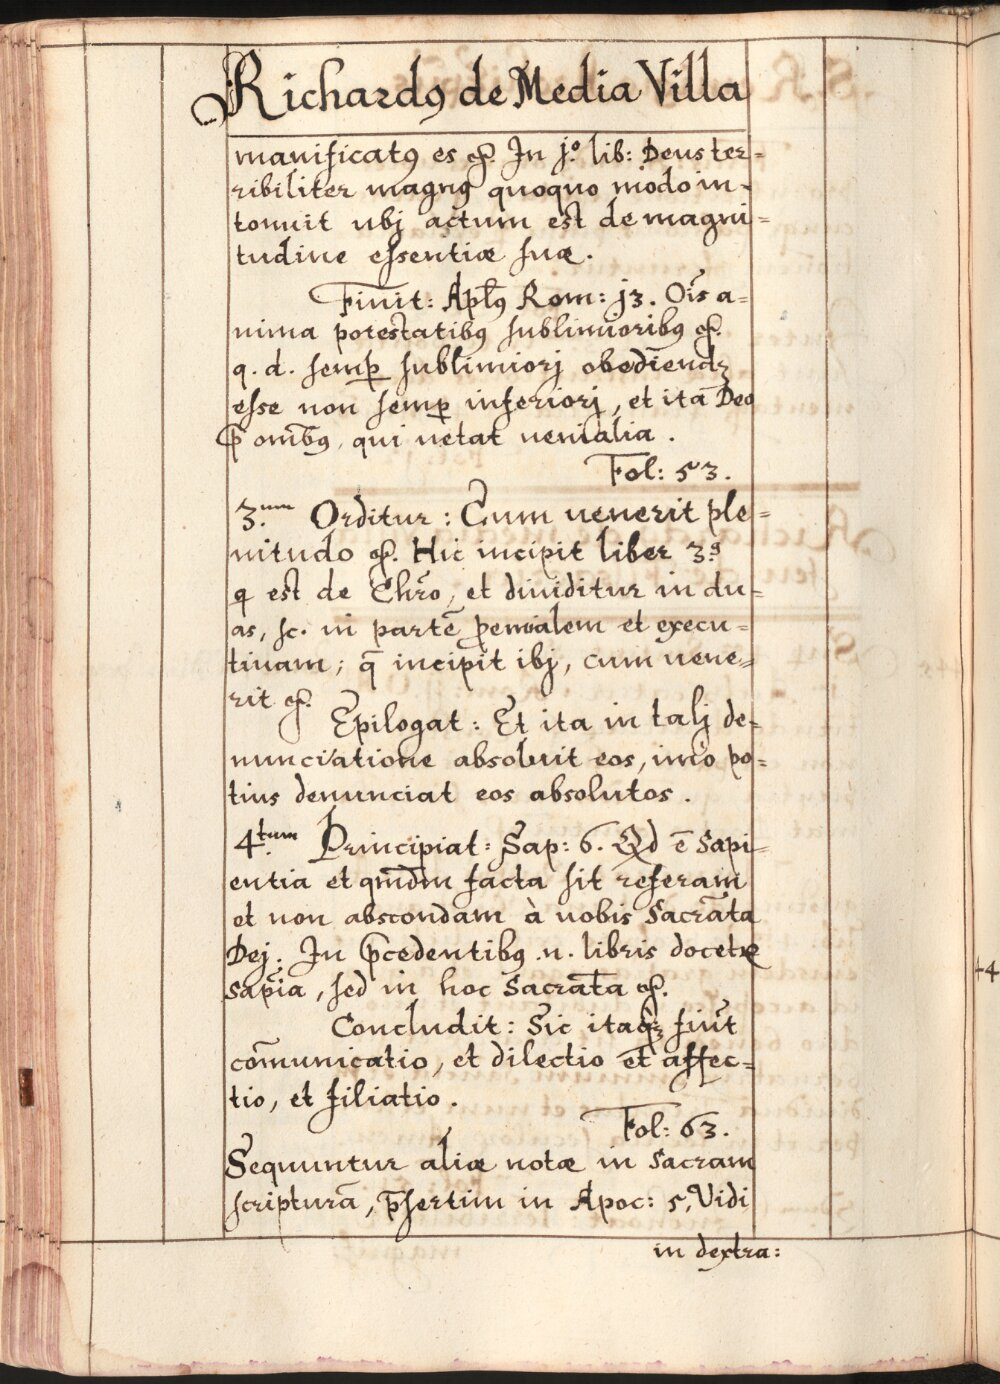 Richardꝯ de Media Villa
manificatꝯ es &c. In j.º lib: Deus ter-
ribiliter magnꝯ quoquo modo in-
tonuit ubj actum est de magni-
tudine essentiæ suæ.
Finit: Apl̃ꝯ Rom: j3. Oĩs a-
nima potestatibꝯ sublimioribꝯ &c.
q. d. semꝑ sublimiorj obediendꝫ
esse non semꝑ inferiorj, et ita Deo
p̃ omĩbꝯ, qui uetat uenialia.
Fol: 53.
3.um Orditur: Cum uenerit ple-
nitudo &c. Hic incipit liber 3.ꝯ
q̃ est de Chr̃o, et diuiditur in du-
as, sc. in partẽ p̃emialem et execu-
tiuam; q̃ incipit ibj, cum uene-
rit &c.
Epilogat: Et ita in talj de-
nunciatione absoluit eos, im̃o po-
tius denunciat eos absolutos.
4.tum Principiat: Sap: 6. Qd ẽ sapi-
entia et qm̃dm facta sit referam
et non abscondam à uobis Sacrãta
Dej. In p̃cedentibꝯ .n. libris docetꝛ
sap̃ia, sed in hoc Sacrata &c.
Concludit: Sic itaqꝫ fiũt
com̃unicatio, et dilectio et affec-
tio, et filiatio.
Fol: 63.
Sequuntur aliæ notæ in Sacram
scripturã, p̃sertim in Apoc: 5, Vidi
in dextra:
+4